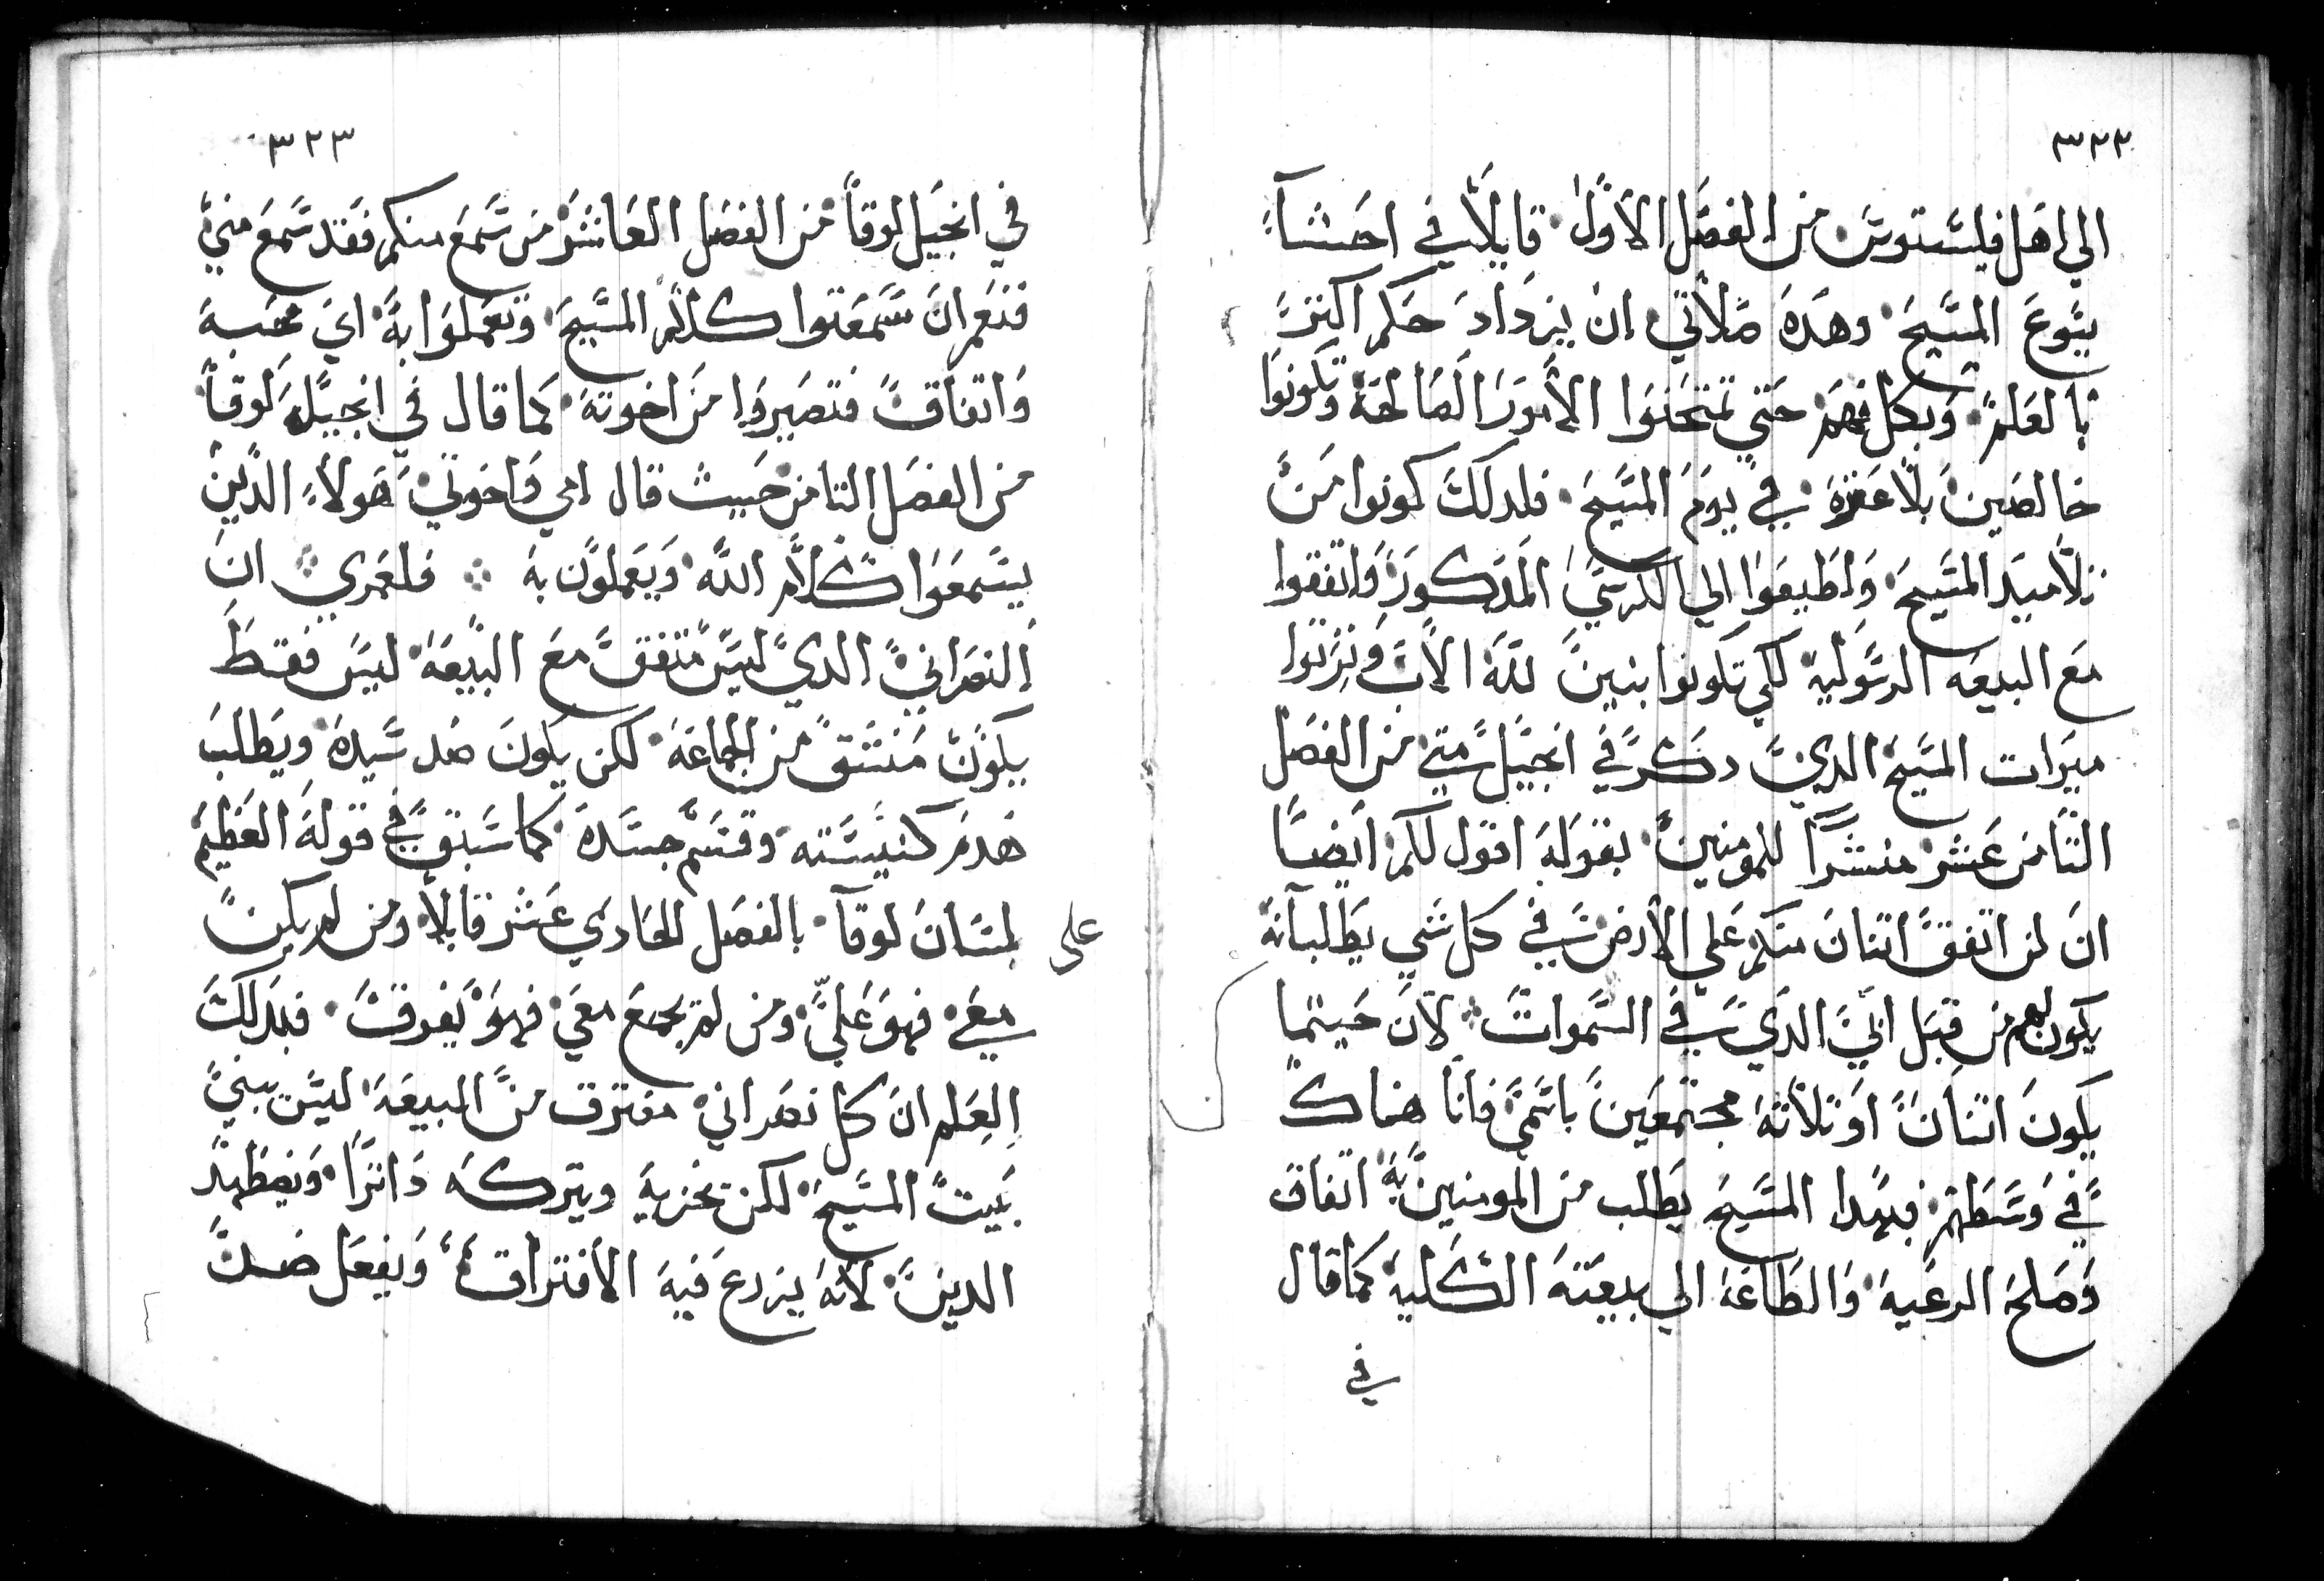 ٣٢٢
الي اهل فيلسّتوسّ من الفصل الاول قايلاً في احشآءَ
يسّوعَ المسّيح وهَدهَ صَلاتي ان يزدادَ حَكم اكترَ
بالعَلم وَبكل فهم حَتي تمتحَنوَا الامورَ الصَالحَة وتكونوَا
خالصَينَ بلا عَترة في يومَ المسّيح فلدلكَ كونوا مَن
تلاميد المسّيحَ وَاطَيعَوا الي الكرسّي المَدكورَ وَاتفقوا
مَع البيعه الرسّوليه لكي تكونوا بنينَ للّه الابَ وَترتوا
ميرات المسّيح الديَ دكرَ في انجيل متي من الفصَل
التامن عَشر منشراً للمومنين بقولهَ اقول لكم ايضاً
انَ لن اتفقَ اتنانَ منكم عَلي الارض في كل شَي يطَلبانه
يكون لهم من قبَل ابي الدَي في السّموات لان حَيتما
يكونَ اتنانَ اوَ تلاتهَ مجتمَعَينَ باسّمي فانا هناك
في وَسّطَهم فبهدا المسّيحَ يطَلب من المومنينَ به اتفاق
وَصَلحَ الرعَيهَ وَالطَاعَهَ الي بيعَتهَ الكلية كما قال
في
٣٢٣
في انجيل لوقا من الفصَل العَاشر من سّمعَ منكم فقد سّمعَ مني
فنعَم انَ سّمعَتوا كلام المسّيحَ وتعَملوَا به ايَ محَبهَ
وَاتفاقَ فتصَيروَا منَ اخوتهَ كما قال في انجيل لوقا
من الفصَل التامن حَيث قال امي وَاخوتي هَولاءَ الدَين
يسّمعَوَا كلام اللّه وَيعَملون به فلعَمري انَ
النصَرانيَ الديَ ليسّ متفقَ معَ البيعَهَ ليسّ فقطَ
يكونَ منشقَ من الجماعَهَ لكن يكونَ ضد سّيدهَ ويطَلبَ
هَدم كنيسّته وقسّم جسّدهَ كما سّبقَ في قولهَ العَظيم
على لسّانَ لوقآ بالفصَل الحَادي عَشر قايلاً ومن لم يكنَ
معَي فهوَ عَليَ ومن لم يجمعَ معَي فهوَ يفرقَ فبدلكَ
العَلم انَ كل نصَراني مفترق منَ البيعَهَ ليسّ يبنيَ
بَيتَ المسّيحَ لكن يخربهَ ويتركهَ دَاتراً وَيضطَهدَ
الدينَ لانهَ يزرعَ فيهَ الافتراقَ وَيفعَل ضدَ